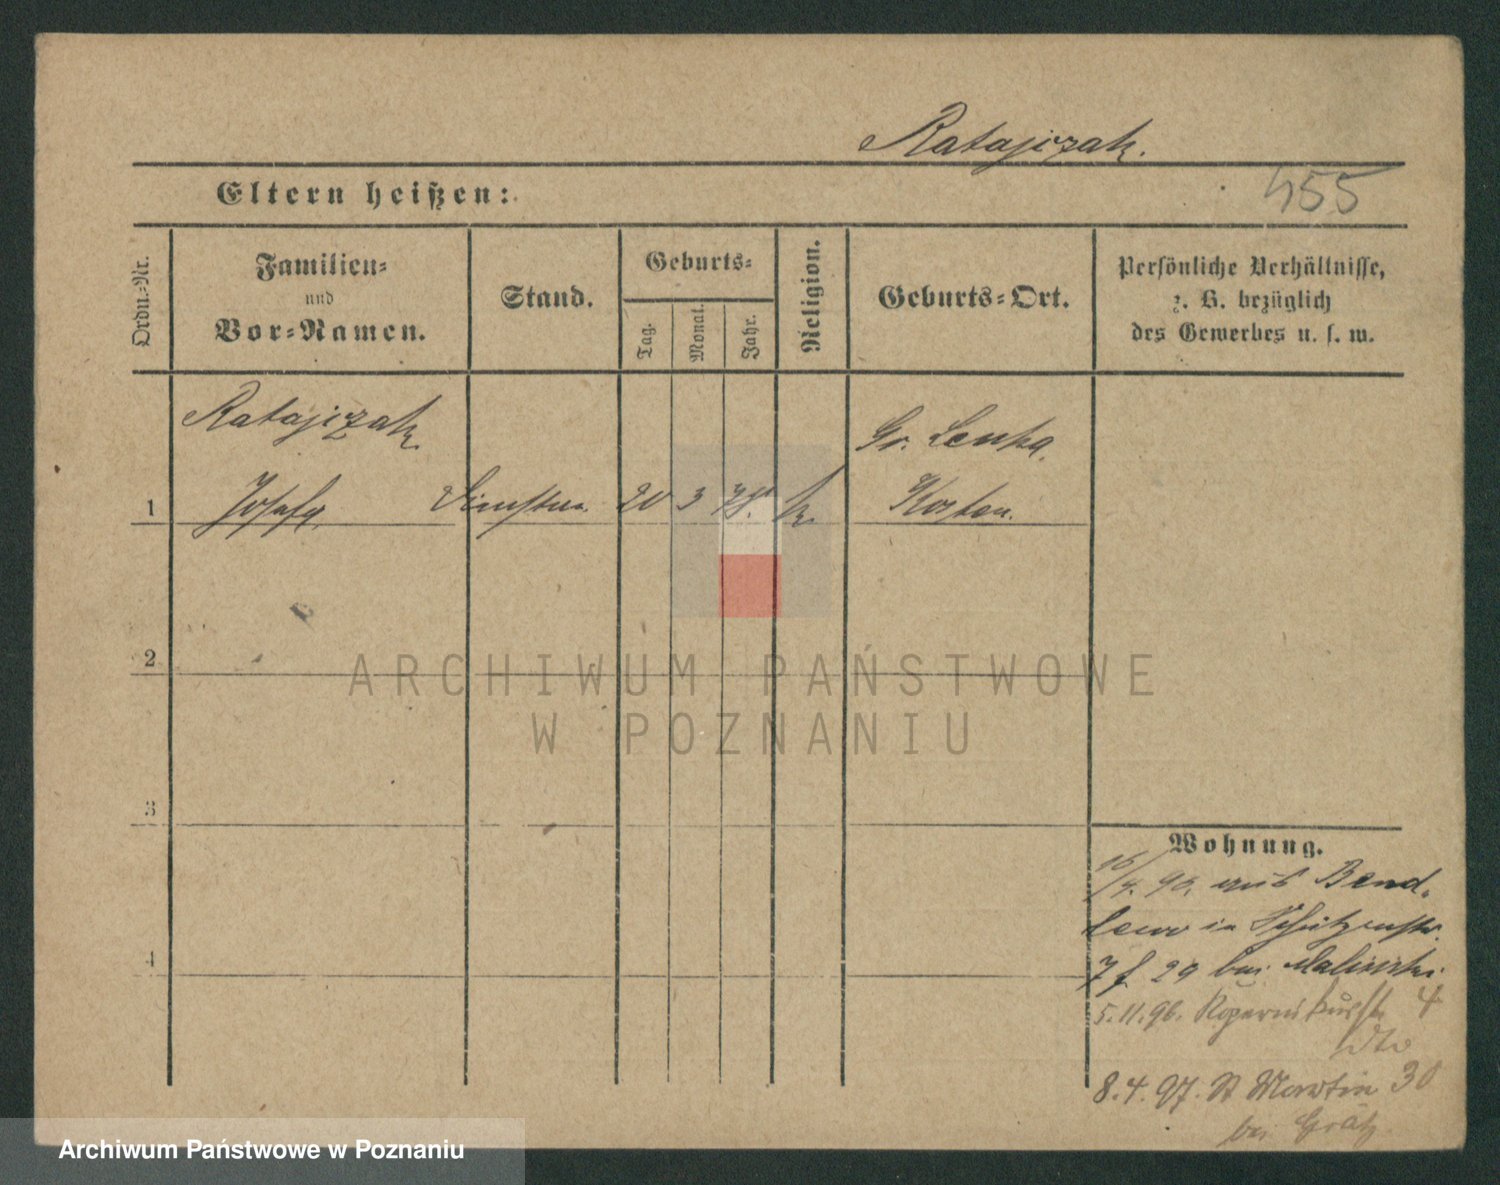 Ratajczak.
Eltern heißen:
455
Ordn.-Nr.
Familien-
und
Vor-Namen.
Stand.
Geburts-
Tag.
Monat.
Jahr.
Religion.
Geburts-Ort.
Persönliche Verhältnisse,
z. B. bezüglich
des Gewerbes u. s. w.
Ratajczak
Gr. Lenka
1 Josefa 20 3 78. k. Kosten.
2
3
4
Wohnung.
16/4. 96. aus Bend-
lewo in Schützenstr.
29 bei Malinski
5.11.96. Kopernikusstr 4
8.4.97. St Martin 30
bei Grätz
ARCHIWUM PAŃSTWOWE
W POZNANIU
Archiwum Państwowe w Poznaniu